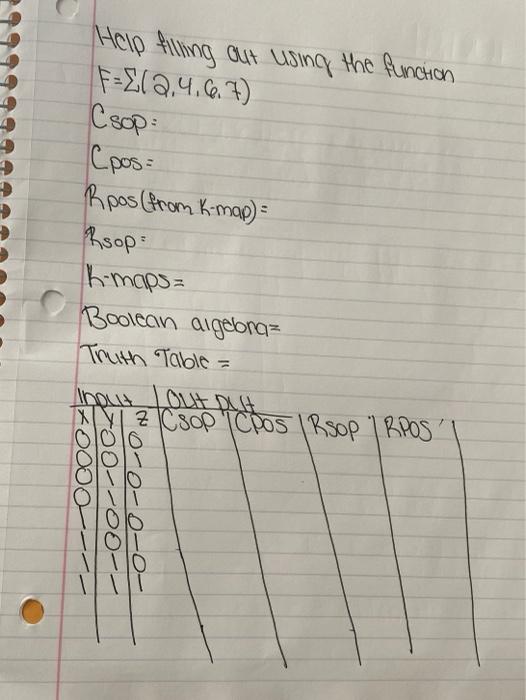 Help filling out using the function
F=Σ(2,4,6,7)
Csop=
Cpos=
Rpos (from K-map)=
Rsop=
K-maps=
Boolean algebra=
Truth Table =
Input | Output
X | Y | Z | CSOP | CPOS | RSOP | RPOS
0 0 0
0 0 1
0 1 0
0 1 1
1 0 0
1 0 1
1 1 0
1 1 1